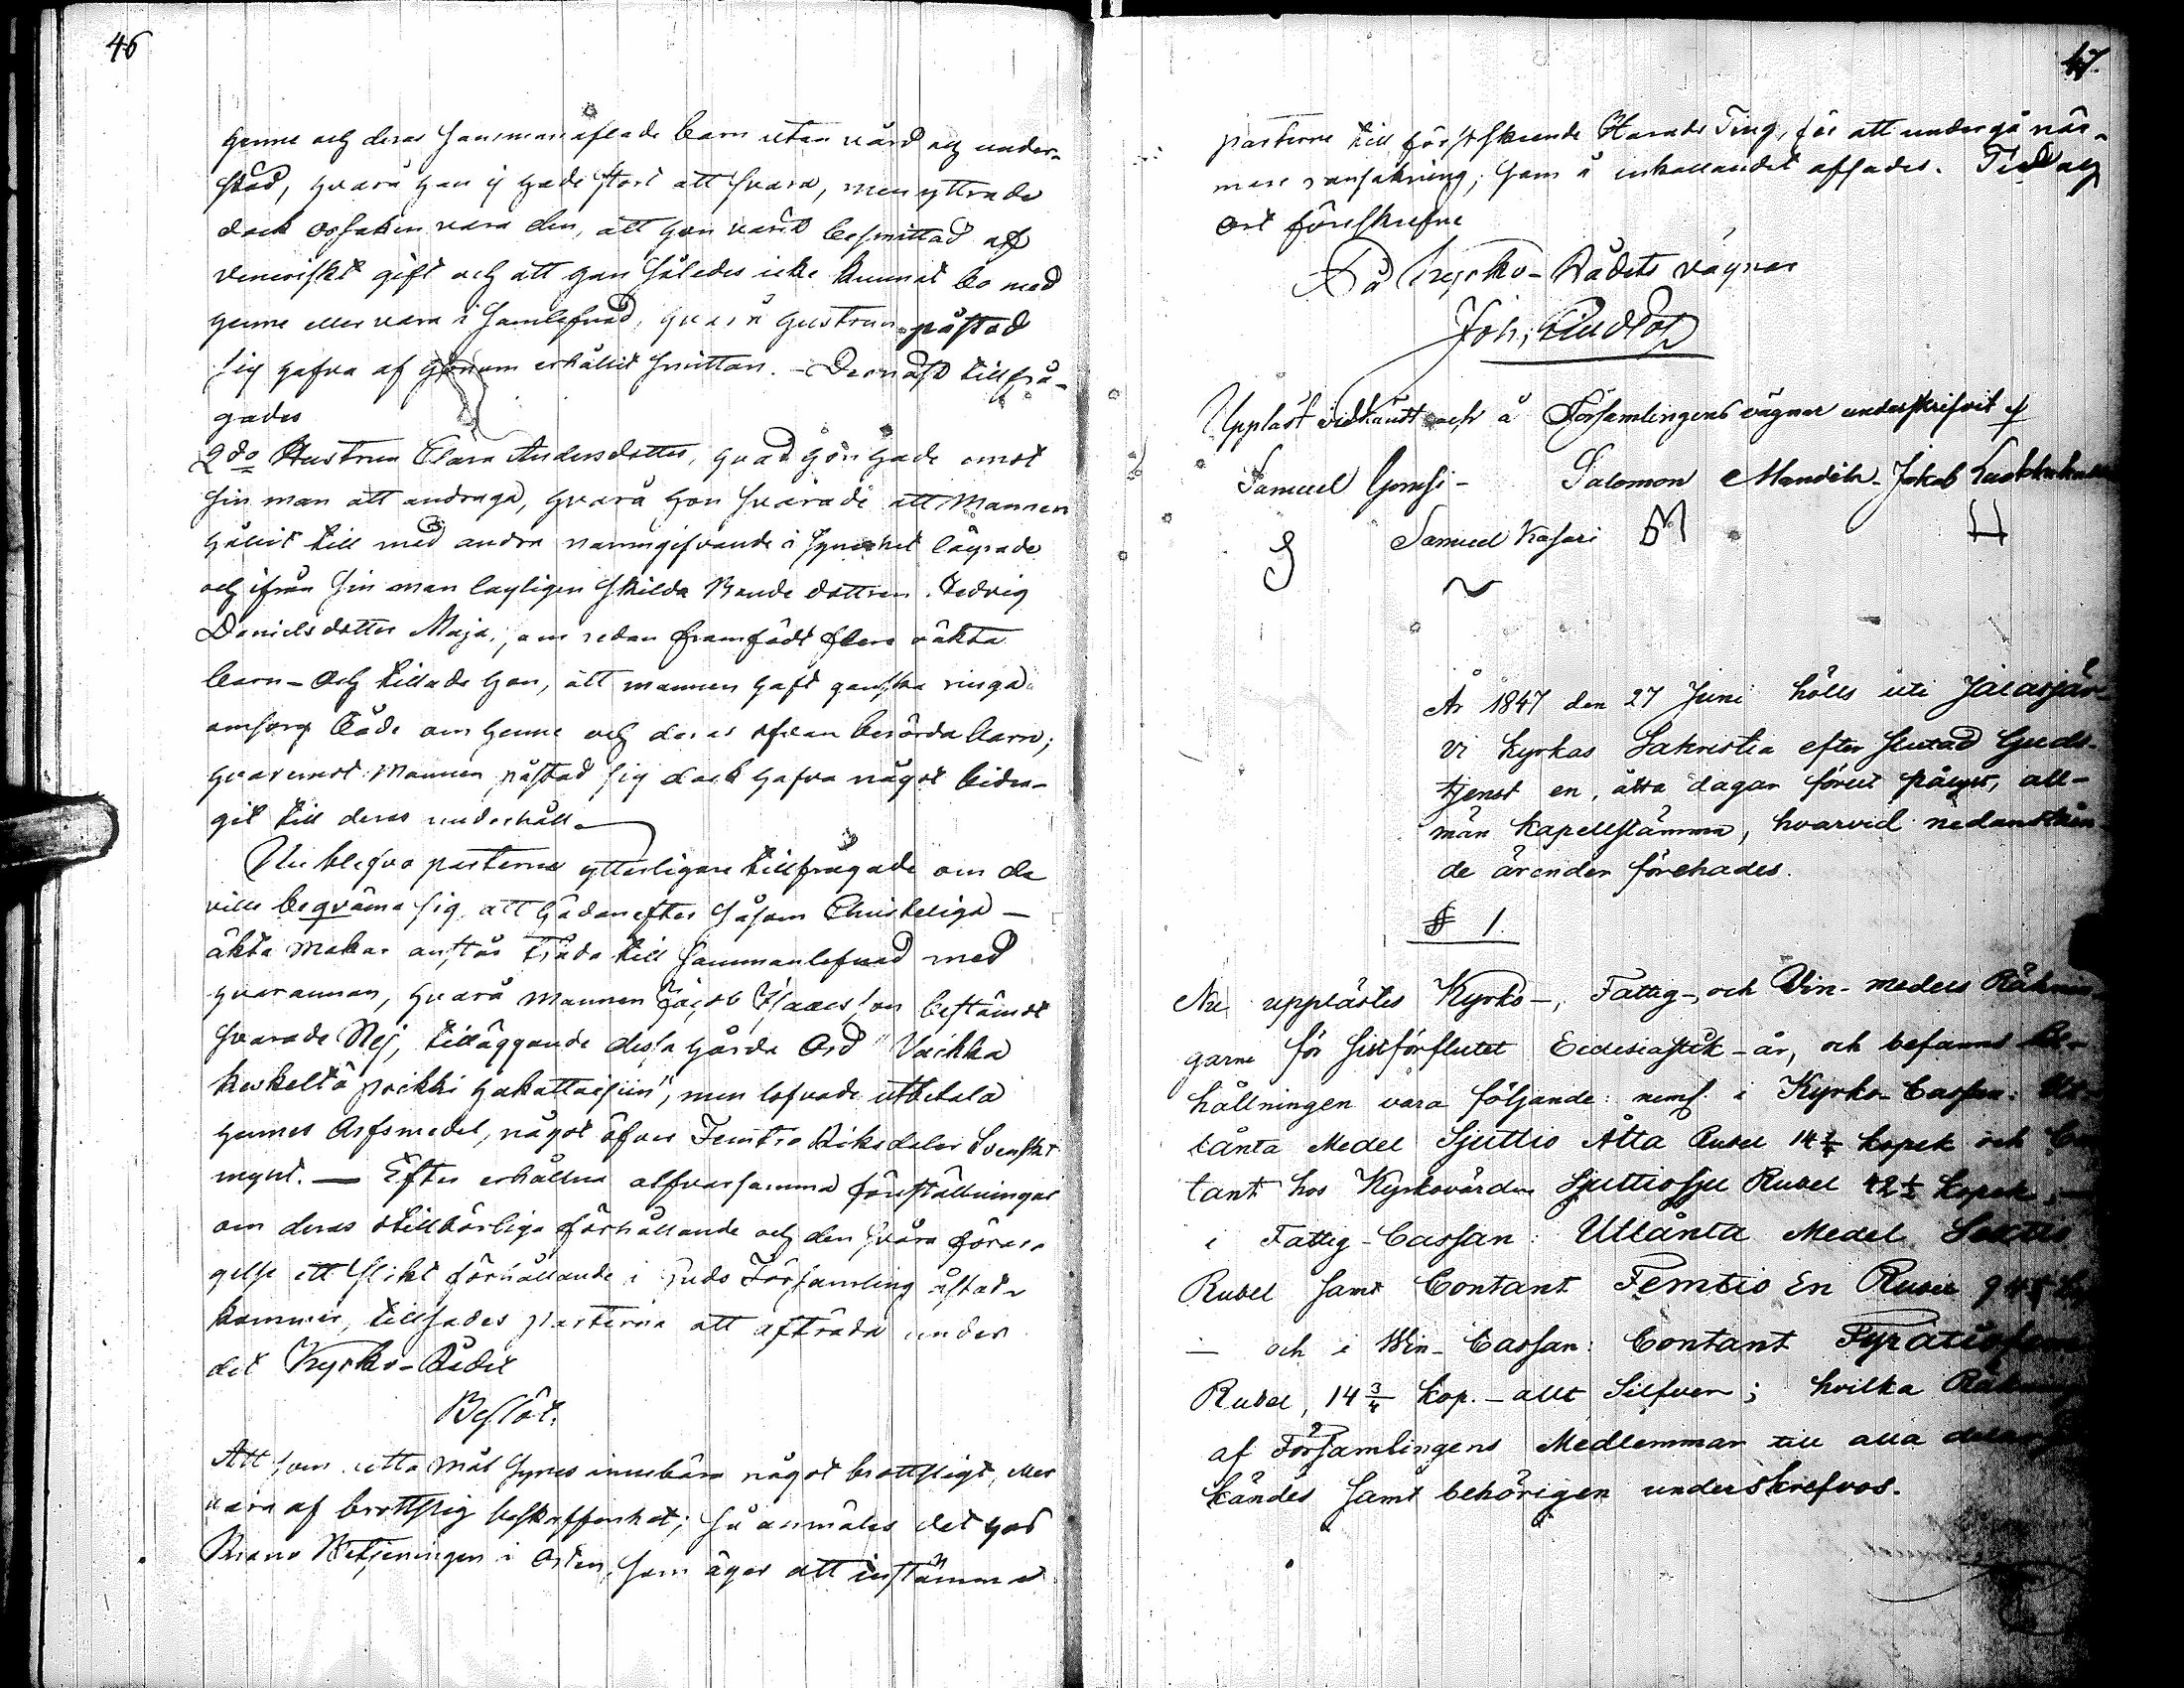 46
henne och deras sammanaflade barn utan vård och under-
stöd, hvarå han ej hade stort att svara, men yttrade
dock orsaken vara den, att hon varit besmittad af
veneriskt gift och att han således icke kunnat bo med
henne eller vara i samlefnad, hvarå hustrun påstod
sig hafva af honom erhållit smittan. - Dernäst tillfrå-
gades
2do Hustrun Clara Andersdotter, hvad hon hade emot
sin man att andraga, hvarå hon svarade att Mannen
hållit till med andra namngifvande i synnerhet lägrade
och ifrån sin man lagligen skilda Bonde dottren Hedvig
Danielsdotter Maja, som redan framfödt flere oäkta
barn - Och tillade hon, att mannen haft ganska ringa
omsorg både om henne och deras ofvan berörda barn;
hvaremot Mannen påstod sig dock hafva något bidra-
git till deras underhåll.
Nu blefvo parterna ytterligare tillfrågade om de
ville beqväma sig att hädanefter såsom Christeliga -
äkta Makar anstår träda till sammanlefnad med
hvarannan, hvarå mannen Jacob Isaacsson bestämdt
svarade Nej, tilläggande dessa hårda Ord "Vaikka
keskeltä poikki hakattaisiin", men lofvade utbetala
hennes Arfsmedel, något öfver Femtio Riksdaler Svenskt
mynt. — Efter erhållna alfvarsamma föreställningar
om deras otillbörliga förhållande och den svåra förar-
gelse ett slikt förhållande i Guds Församling åstad-
kommer, tillsades parterna att afträda under
det Kyrko-Rådet
Beslöt:
Att som detta mål synes innebära något brottsligt, eller
vara af brottslig beskaffenhet; så anmäles det hos
Krono Betjeningen i Orten, som äger att instämma
47.
parterne till förstskeende Härads Ting, för att undergå när-
mare ransakning; som å inkallandet afsades. Tid och
Ort föreskrefne
På Kyrko-Rådets vägnar
Joh:
Uppläst vidkändt och å Församlingens vägnar underskrifvit af
Samuel Samuel Kasari Salomon Mandila Jakob
S M H
År 1847 den 27 Juni hölls uti Jalasjär-
vi Kyrkas Sakristia efter slutad Guds-
tjenst en, åtta dagar förut pålyst, all-
män kapellstämma, hvarvid nedanstån-
de ärenden förehades.
§ 1.
Nu upplästes Kyrko-, Fattig-, och Vin-medels Räknin-
garne för sistförflutet Ecclesiastik-år, och befanns Be-
hållningen vara följande: neml. i Kyrko-Cassan: Ut-
lånta Medel Sjuttio Åtta Rubel 14 kopek och Con-
tant hos Kyrkovärden Sjuttiosju Rubel 42 kopek, —
i Fattig-Cassan: Utlånta Medel
Rubel samt Contant Femtio En Rubel
— och i Win-Cassan: Contant Fyratiofem
Rubel, 14 3/4 kop. - allt Silfver; hvilka Räkningar
af Församlingens Medlemmar till alla delar
kändes samt behörigen underskrefvos.